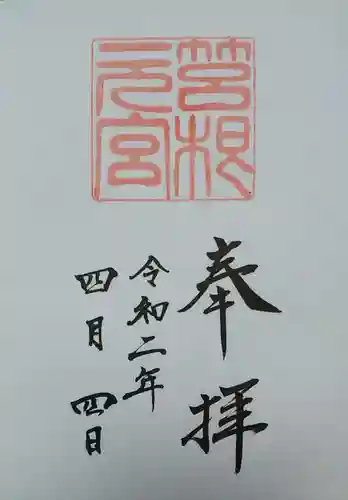 筥根
元宮
奉拝
令和二年
四月四日